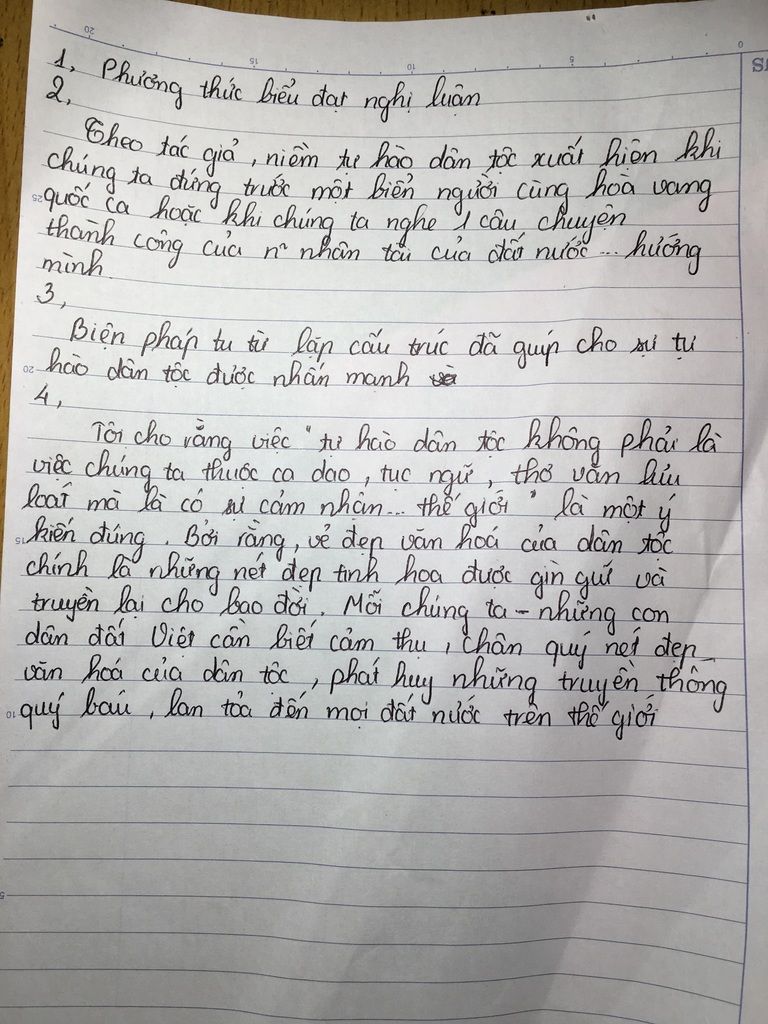 1, Phương thức biểu đạt nghị luận
2,
Theo tác giả, niềm tự hào dân tộc xuất hiện khi
chúng ta đứng trước một biển người cùng hoà vang
quốc ca hoặc khi chúng ta nghe 1 câu chuyện
thành công của nn nhân tài của đất nước ... hướng
mình
3,
Biện pháp tu từ lặp cấu trúc đã giúp cho sự tự
hào dân tộc được nhấn mạnh
4,
Tôi cho rằng việc "tự hào dân tộc không phải là
việc chúng ta thuộc ca dao, tục ngữ, thơ văn lưu
loát mà là có sự cảm nhận... thế giới" là một ý
kiến đúng. Bởi rằng, vẻ đẹp văn hoá của dân tộc
chính là những nét đẹp tinh hoa được gìn giữ và
truyền lại cho bao đời. Mỗi chúng ta - những con
dân đất Việt cần biết cảm thụ, chân quý nét đẹp
văn hoá của dân tộc, phát huy những truyền thống
quý báu, lan tỏa đến mọi đất nước trên thế giới